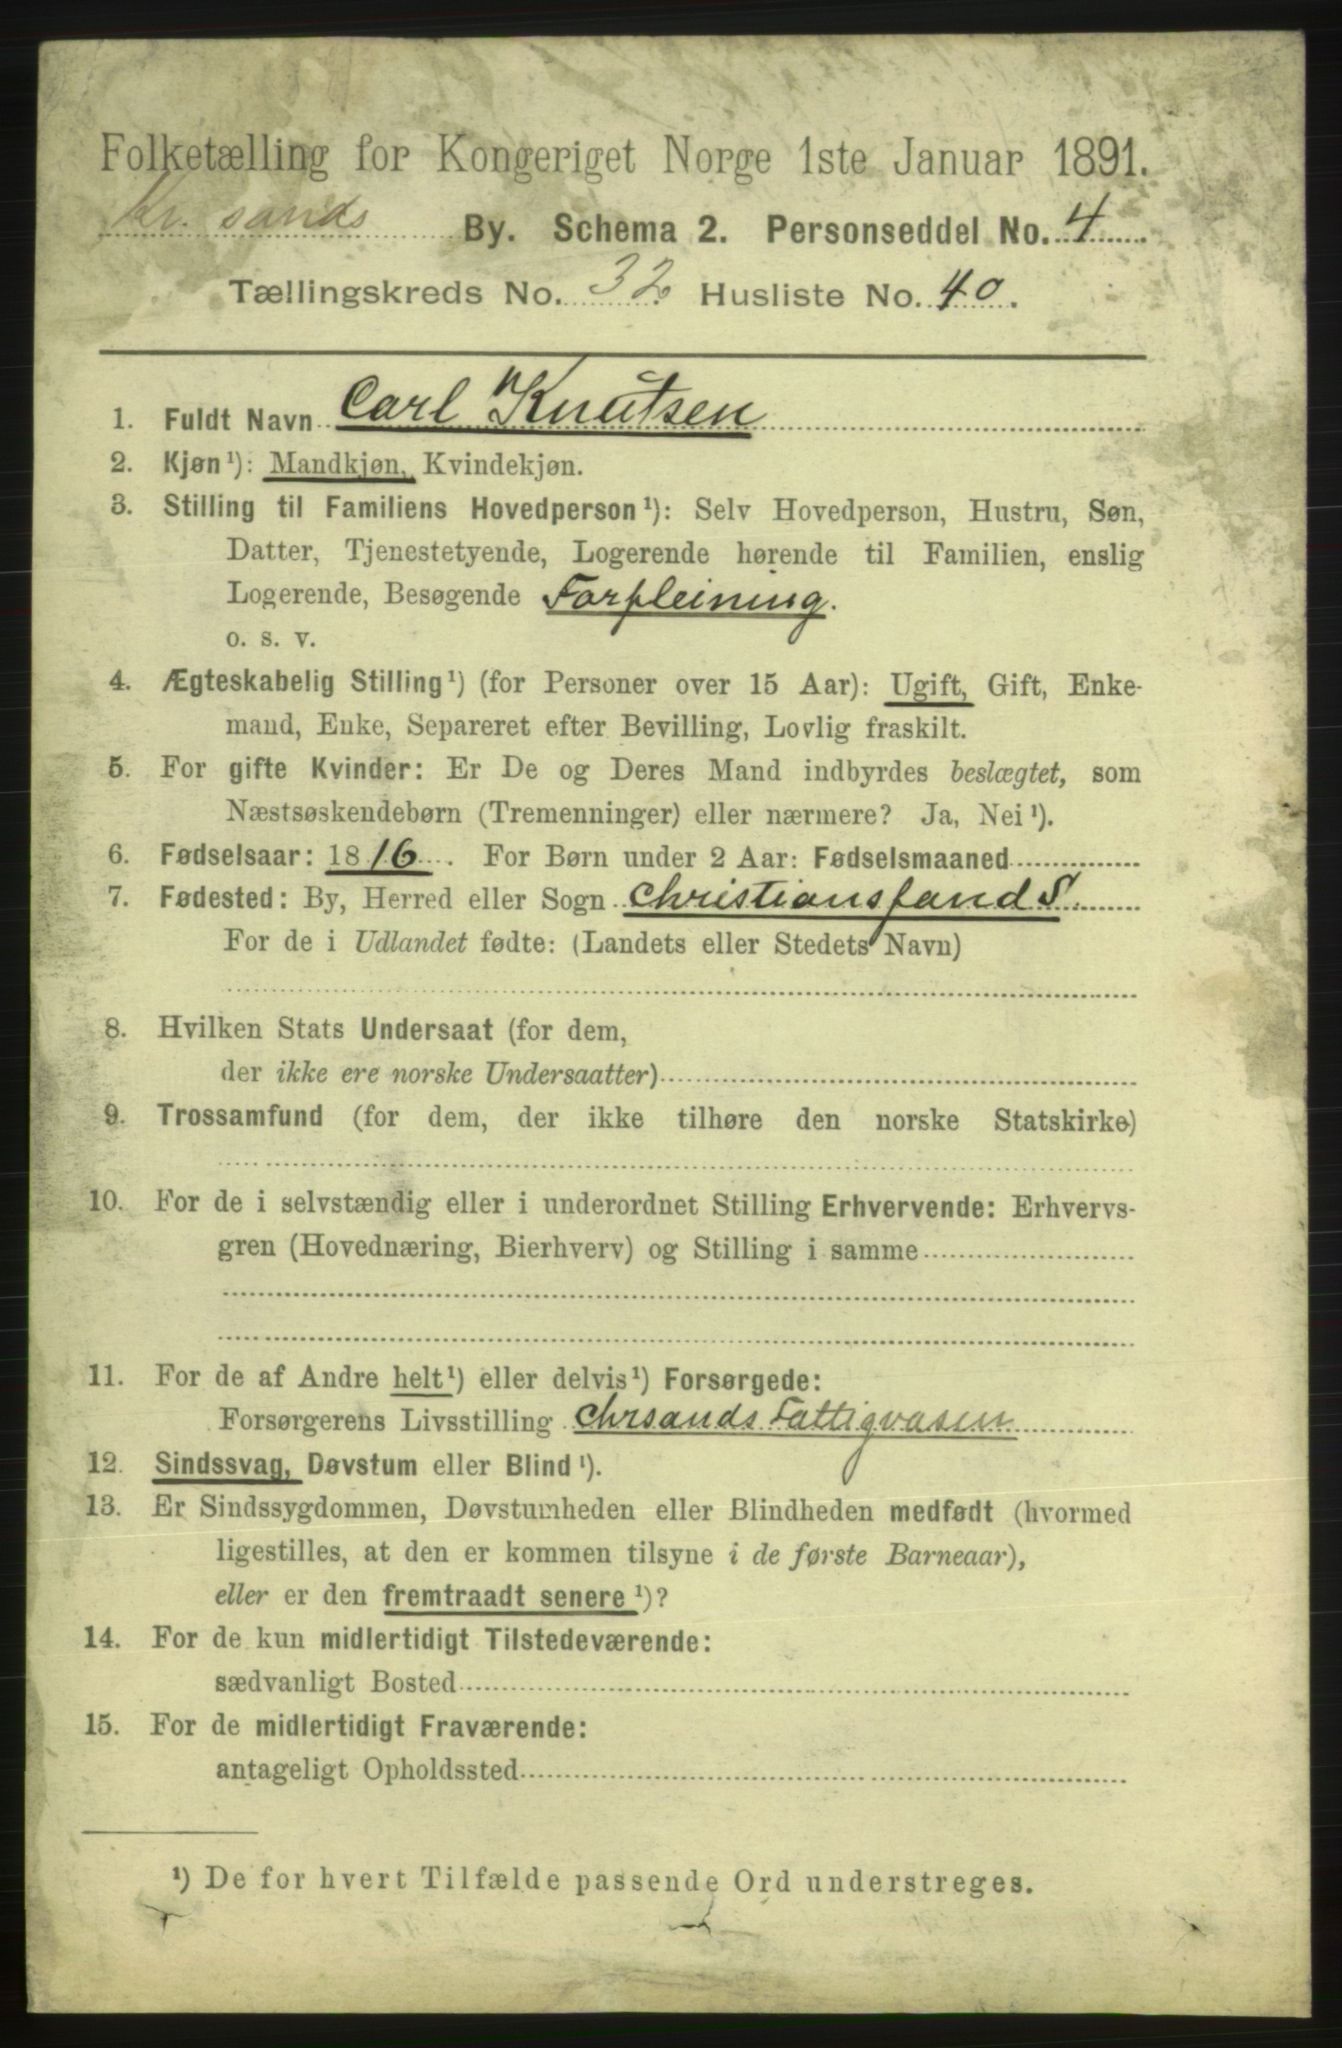 Folketælling for Kongeriget Norge 1ste Januar 1891.
Kr. sands By. Schema 2. Personseddel No. 4
Tællingskreds No. 32 Husliste No. 40.
1. Fuldt Navn Carl Knutsen
2. Kjøn¹): Mandkjøn, Kvindekjøn.
3. Stilling til Familiens Hovedperson¹): Selv Hovedperson, Hustru, Søn,
Datter, Tjenestetyende, Logerende hørende til Familien, enslig
Logerende, Besøgende Forpleining.
o. s. v.
4. Ægteskabelig Stilling¹) (for Personer over 15 Aar): Ugift, Gift, Enke-
mand, Enke, Separeret efter Bevilling, Lovlig fraskilt.
5. For gifte Kvinder: Er De og Deres Mand indbyrdes beslægtet, som
Næstsøskendebørn (Tremenninger) eller nærmere? Ja, Nei¹).
6. Fødselsaar: 1816. For Børn under 2 Aar: Fødselsmaaned
7. Fødested: By, Herred eller Sogn Christianssand S.
For de i Udlandet fødte: (Landets eller Stedets Navn)
8. Hvilken Stats Undersaat (for dem,
der ikke ere norske Undersaatter)
9. Trossamfund (for dem, der ikke tilhøre den norske Statskirke)
10. For de i selvstændig eller i underordnet Stilling Erhvervende: Erhvervs-
gren (Hovednæring, Bierhverv) og Stilling i samme
11. For de af Andre helt¹) eller delvis¹) Forsørgede:
Forsørgerens Livsstilling Chrsands Fattigvæsen
12. Sindssvag, Døvstum eller Blind¹).
13. Er Sindssygdommen, Døvstumheden eller Blindheden medfødt (hvormed
ligestilles, at den er kommen tilsyne i de første Barneaar),
eller er den fremtraadt senere¹)?
14. For de kun midlertidigt Tilstedeværende:
sædvanligt Bosted
15. For de midlertidigt Fraværende:
antageligt Opholdssted
¹) De for hvert Tilfælde passende Ord understreges.